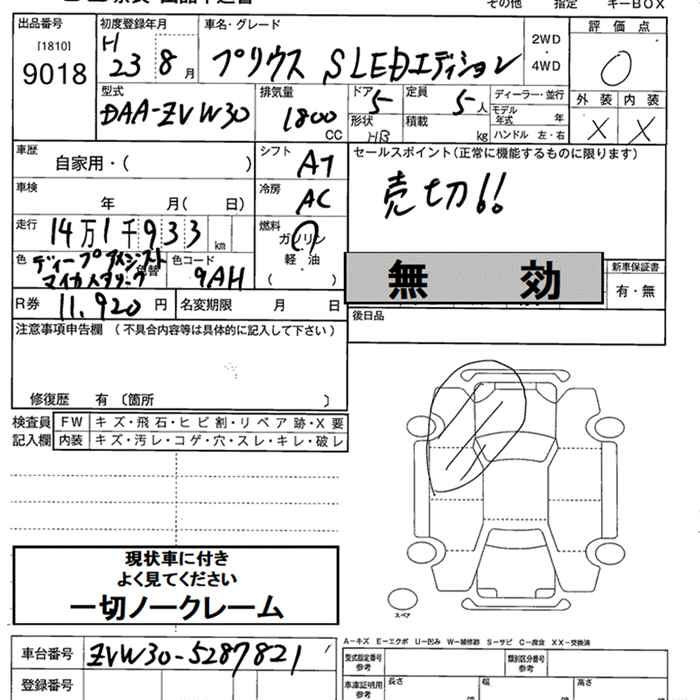 その他 指定 キーBOX
出品番号 初度登録年月 車名・グレード 評価点
[1810]
9018
H
23 8月 プリウス SLEDエディション
2WD
・
4WD
0
外装 内装
X X
型式 排気量 ドア 定員 ディーラー・並行
DAA-ZVW30 1800 CC 5 5人
モデル年式 年
形状 HB 積載 kg ハンドル 左・右
車歴 自家用・( ) シフト AT
セールスポイント(正常に機能するものに限ります)
売切!!
車検 年 月( 日) 冷房 AC
走行 14万1千933km 燃料 ガソリン
軽・油
( )
色 色替 色コード 9AH
マイカ
無 効
新車保証書
有・無
R券 11,920円 名変期限 月 日
後日品
注意事項申告欄(不具合内容等は具体的に記入して下さい)
修復歴 有〔箇所 〕
検査員 FW キズ・飛石・ヒビ割・リペア跡・X要
記入欄 内装 キズ・汚レ・コゲ・穴・スレ・キレ・破レ
現状車に付き
よく見てください
一切ノークレーム
スペア
車台番号 ZVW30-5287821
A-キズ E-エクボ U-凹み W-補修跡 S-サビ C-腐食 XX-交換済
登録番号
型式指定番号 参考 類別区分番号 参考
車庫証明用 参考 長さ 幅 高さ